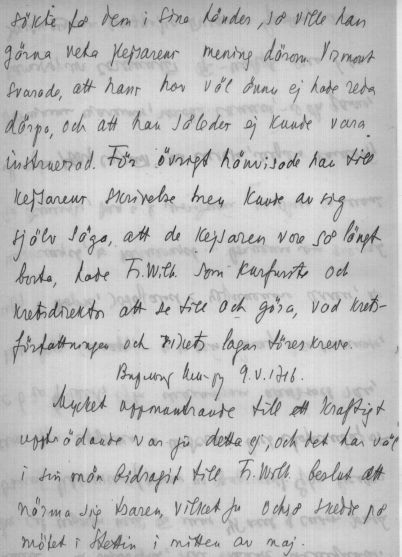 sökte få dem i sina händer, så ville han
gärna veta kejsarens mening därom. Virmont
svarade, att hans hov väl ännu ej hade reda
därpå, och att han således ej kunde vara
instruerad. För övrigt hänvisade han till
kejsarens skrivelse men kunde av sig
själv säga, att de kejsaren vore så långt
borta, hade Fr. Wilh. som kurfurste och
kretsdirektor att se till och göra, vad krets-
författningen och rikets lagar föreskreve.
9.V.1716.
Mycket uppmuntrande till ett kraftigt
uppträdande var ju detta ej, och det har väl
i sin mån bidragit till Fr. Wilh. beslut att
närma sig tsaren, vilket ju också skedde på
mötet i Stettin i mitten av maj.